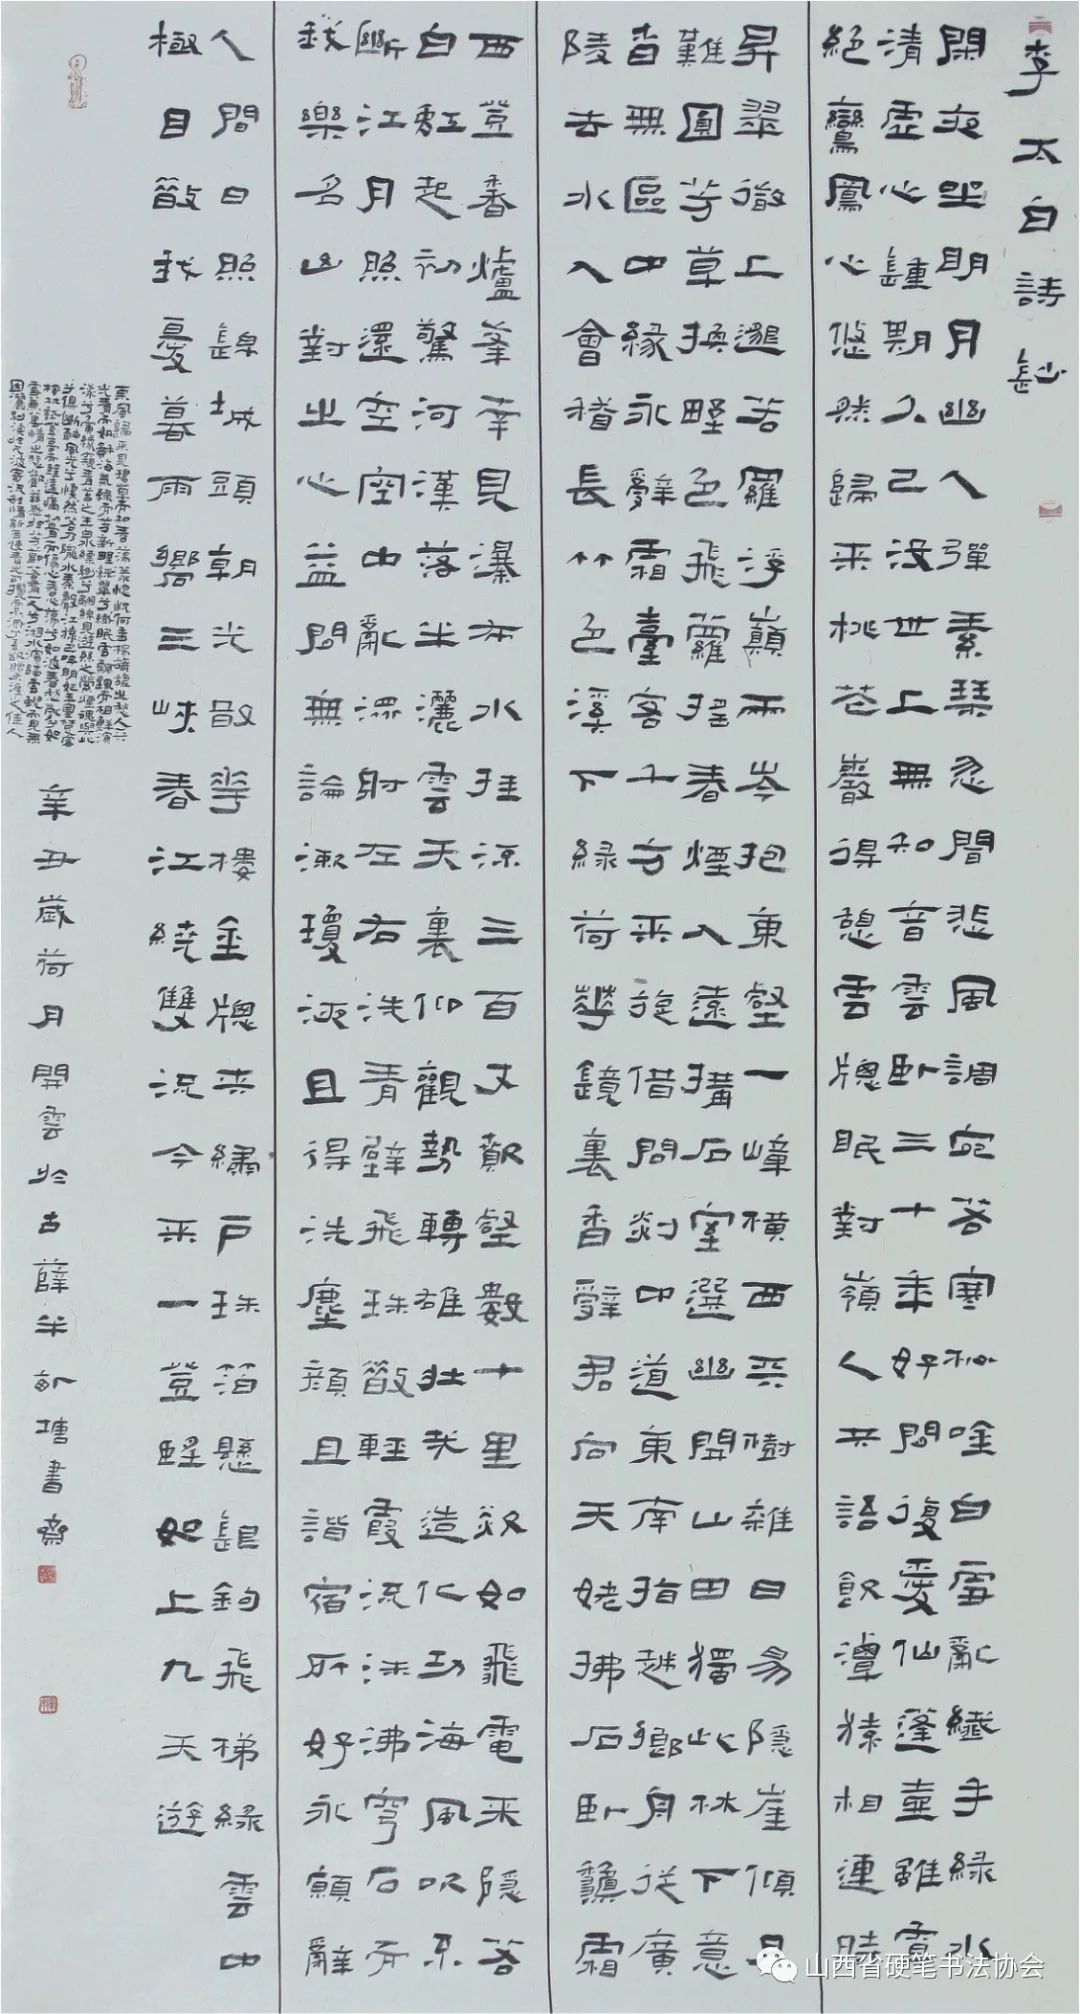 李太白詩鈔
閑夜坐明月幽人彈素琴忽聞悲風調宛若寒松吟白雪亂纖手綠水
清虛心鍾期久已沒世上無知音雲臥三十年好閑復愛仙蓬壺雖冥
絕鸞鳳心悠然歸來桃花巖得憩雲牕眠對嶺人共語飲潭猿相連時
昇翠微上邈若羅浮巔兩岑抱東壑一嶂橫西天樹雜日易隱崖傾月
難圓芳草換野色飛蘿搖春煙入遠搆石室選幽開山田獨此林下意
杳無區中緣永辭霜臺客千方來旋借問剡中道東南指越鄉舟從廣
陵去水入會稽長竹色溪下綠荷華鏡裏香辭君向天姥拂石臥秋霜
西登香爐峯南見瀑布水挂流三百丈歕壑數十里欻如飛電來隱若
白虹起初驚河漢落半灑雲天裏仰觀勢轉雄壯哉造化功海風吹不
斷江月照還空空中亂潀射左右洗青壁飛珠散輕霞流沫沸穹石而
我樂名山對之心益閒無論漱瓊液且得洗塵顏且諧宿所好永願辭
人間日照錦城頭朝光散華樓金牕夾繡戶珠箔懸銀鉤飛梯綠雲中
極目散我憂暮雨嚮三峽春江繞雙流今來一登望如上九天遊
東風歸來見碧草而知春蕩漾惚恍何垂楊旖旎之愁人天
辛丑歲荷月開雲於古薛半畝塘書齋
山西省硬笔书法协会